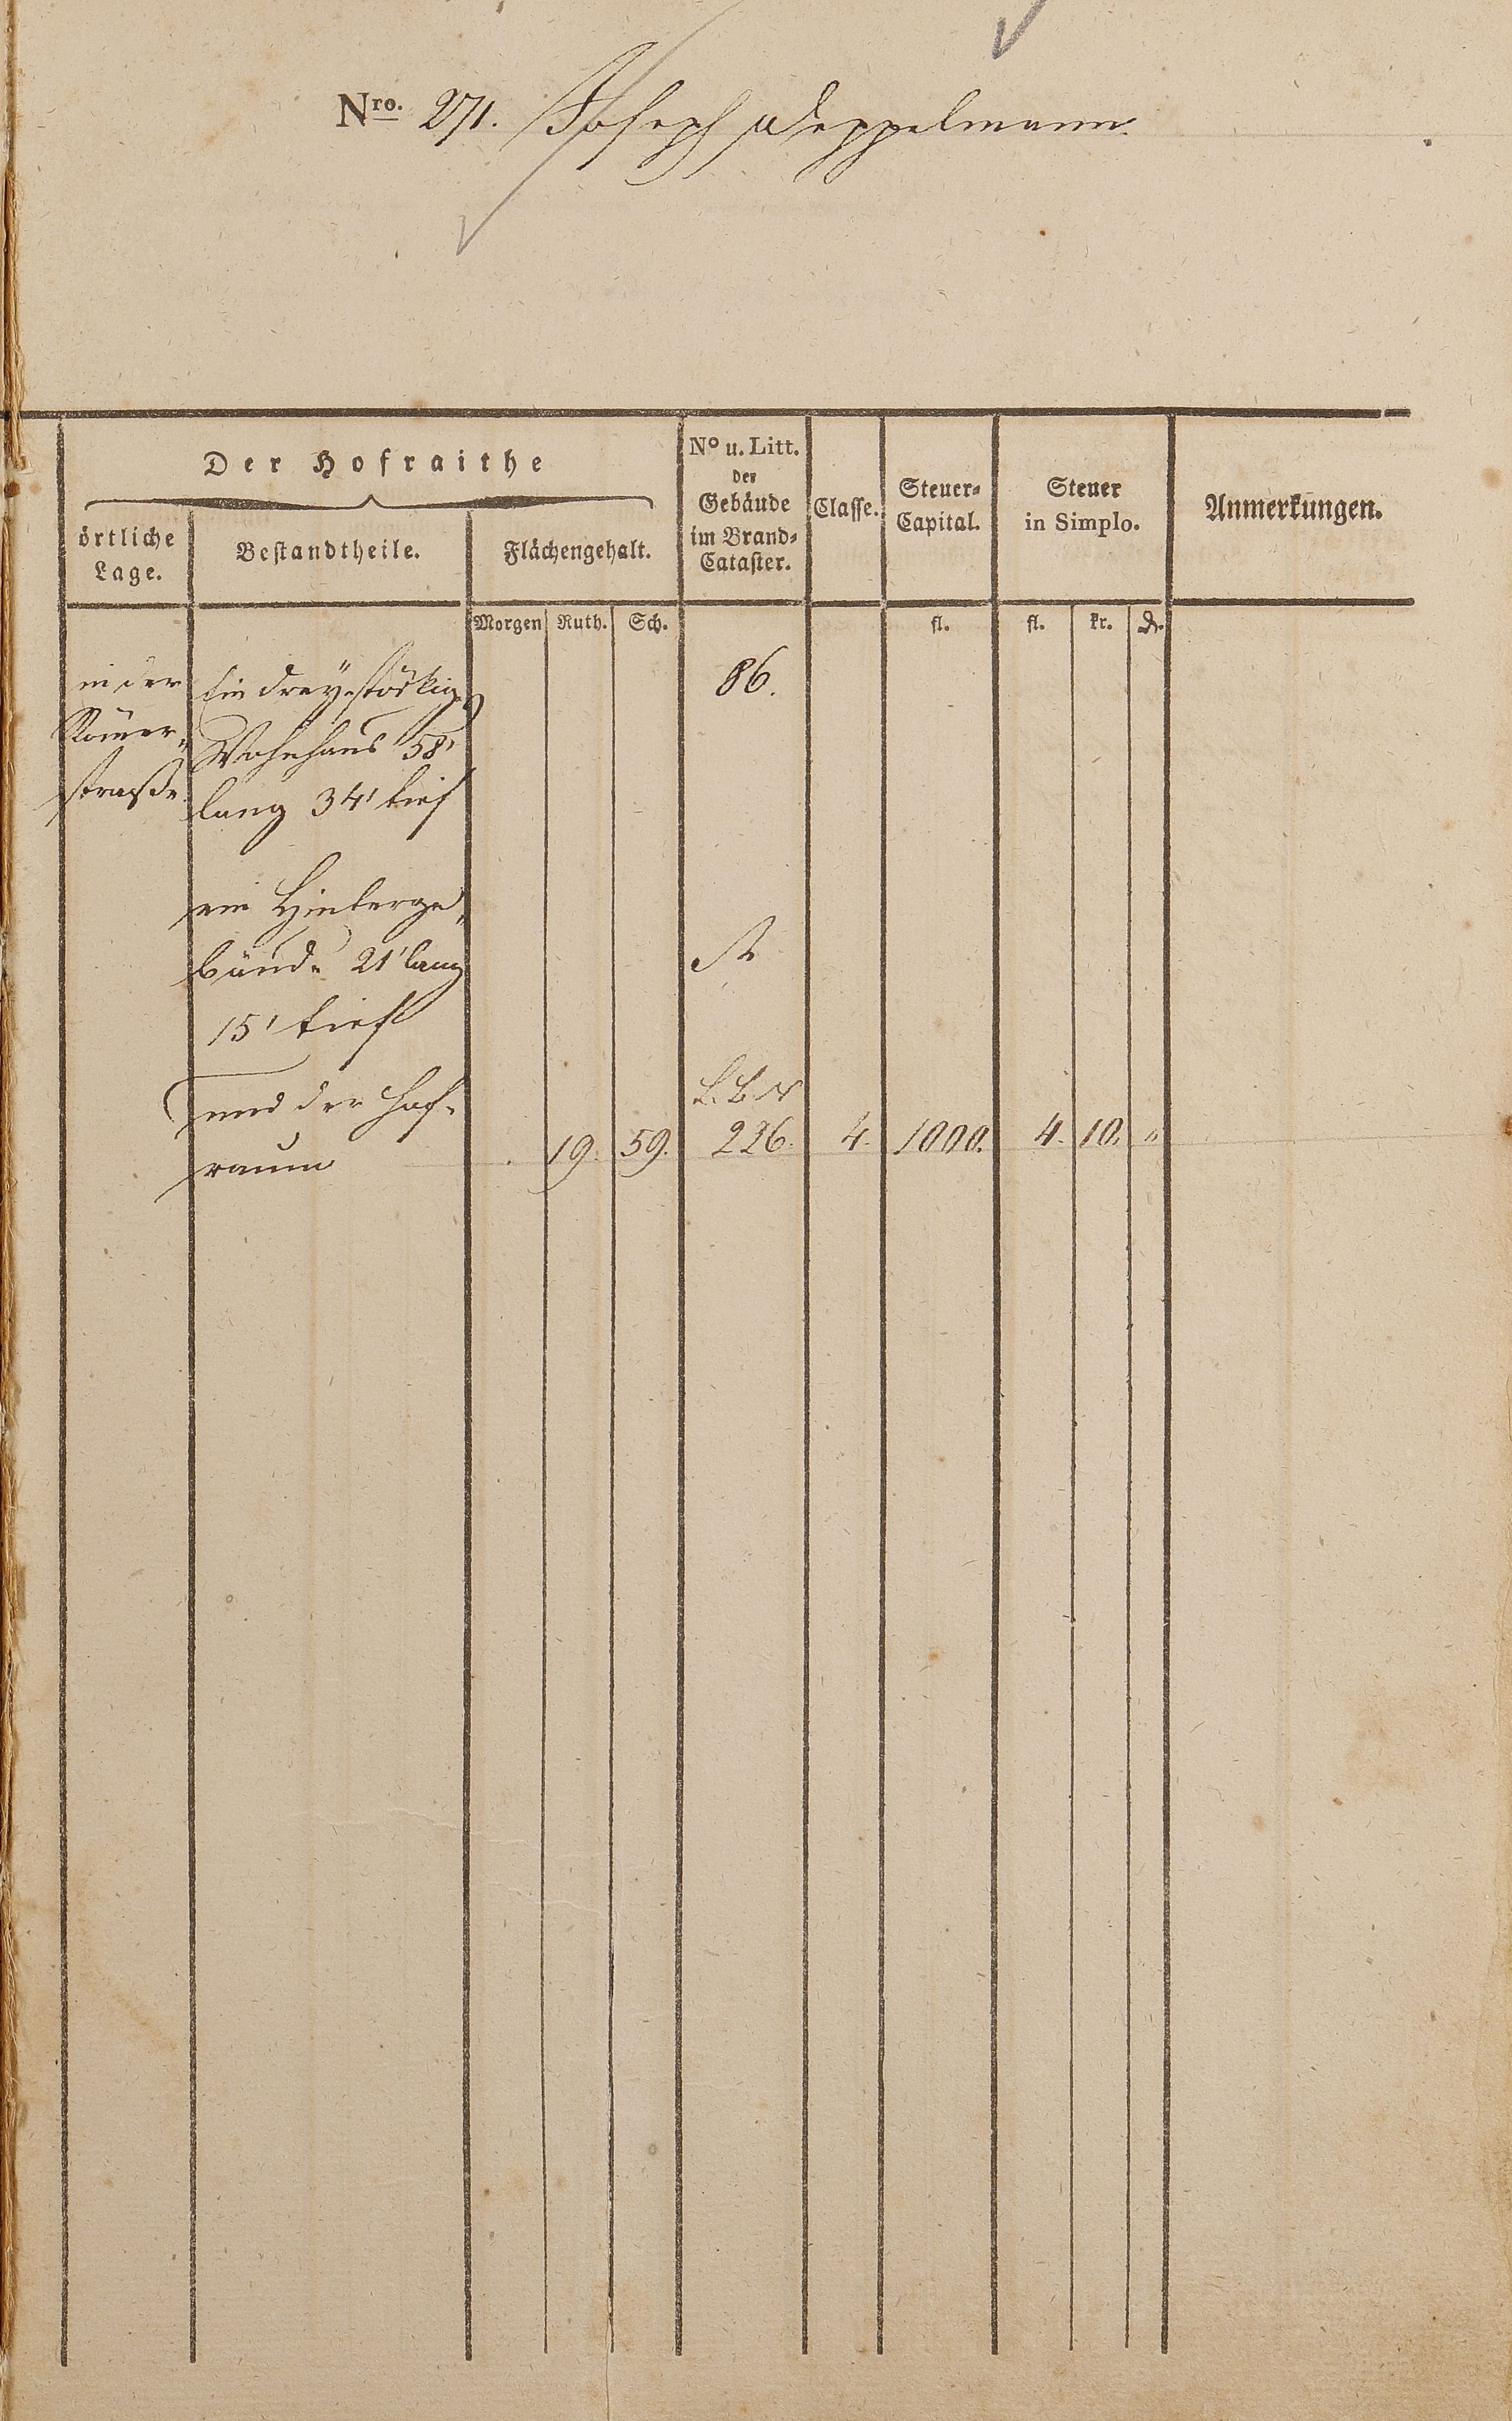 Nro. 271. Joseph Deppelmann.
Der Hofraithe
örtliche Lage.
Bestandtheile.
Flächengehalt.
No u. Litt. der Gebäude im Brand-Cataster.
Classe.
Steuer-Capital.
Steuer in Simplo.
Anmerkungen.
Morgen Ruth. Sch. fl. fl. kr. d.
in der Ein dreystöckig 86.
Römer-
Wohnhaus 58'
straße lang 34' tief
ein Hinterge-
bäude 21' lang A
15' tief
und der Hof- L. B. N
raum 19. 59. 226. 4. 1000. 4. 10. "